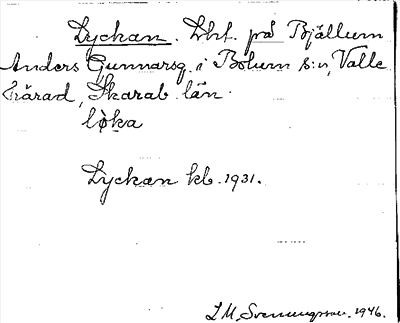 Lyckan. Lht. på Bjällum
Anders Gunnarsg. i Bolum s:n, Valle
härad, Skarab. län.
lø̀ka
Lyckan kb. 1931.
L M. Svenungsson. 1946.